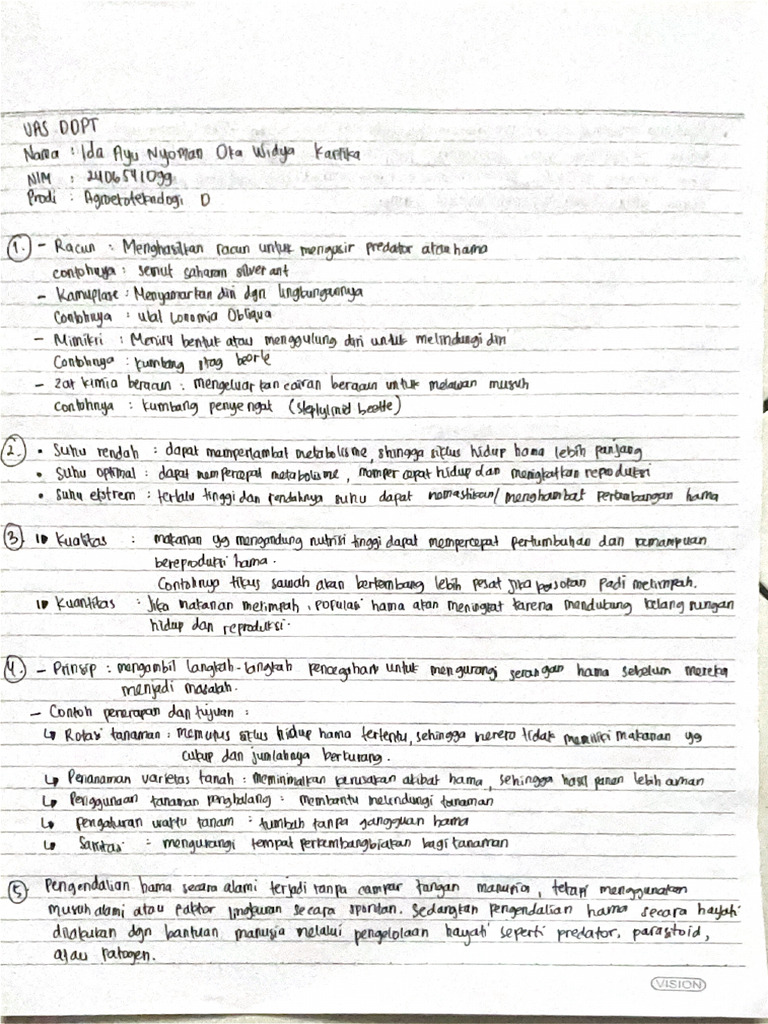 UAS DDPT
Nama : Ida Ayu Nyoman Oka Widya Kartika
NIM : 2406541099
Prodi : Agroekoteknologi D
1. - Racun : Menghasilkan racun untuk mengusir predator atau hama
contohnya : semut saharan silver ant
- Kamuplase : Menyamarkan diri dgn lingkungannya
Contohnya : ulat Lonomia Obliqua
- Mimikri : Meniru bentuk atau menggulung diri untuk melindungi diri
Contohnya : kumbang stag beetle
- Zat kimia beracun : mengeluarkan cairan beracun untuk melawan musuh
Contohnya : kumbang penyengat
2. • Suhu rendah : dapat memperlambat metabolisme, shingga siklus hidup hama lebih panjang
• Suhu optimal : dapat mempercepat metabolisme, mempercepat hidup dan meningkatkan reproduksi
• Suhu ekstrem : terlalu tinggi dan rendahnya suhu dapat mematikan/menghambat perkembangan hama
3. Kualitas : makanan yg mengandung nutrisi tinggi dapat mempercepat pertumbuhan dan kemampuan
bereproduksi hama.
Contohnya tikus sawah akan berkembang lebih pesat jika pasokan padi melimpah.
Kuantitas : Jika makanan melimpah, populasi hama akan meningkat karena mendukung kelangsungan
hidup dan reproduksi.
4. - Prinsip : mengambil langkah-langkah pencegahan untuk mengurangi serangan hama sebelum mereka
menjadi masalah.
- Contoh penerapan dan tujuan :
↳ Rotasi tanaman : memutus siklus hidup hama tertentu, sehingga mereka tidak memiliki makanan yg
cukup dan jumlahnya berkurang.
↳ Penanaman varietas tanah : meminimalkan kerusakan akibat hama, sehingga hasil panen lebih aman
↳ Penggunaan tanaman penghalang : membantu melindungi tanaman
↳ pengaturan waktu tanam : tumbuh tanpa gangguan hama
↳ Sanitasi : mengurangi tempat perkembangbiakan bagi tanaman
5. Pengendalian hama secara alami terjadi tanpa campur tangan manusia, tetapi menggunakan
musuh alami atau faktor lingkungan secara spontan. Sedangkan pengendalian hama secara hayati
dilakukan dgn bantuan manusia melalui pengelolaan hayati seperti predator, parasitoid,
atau patogen.
VISION